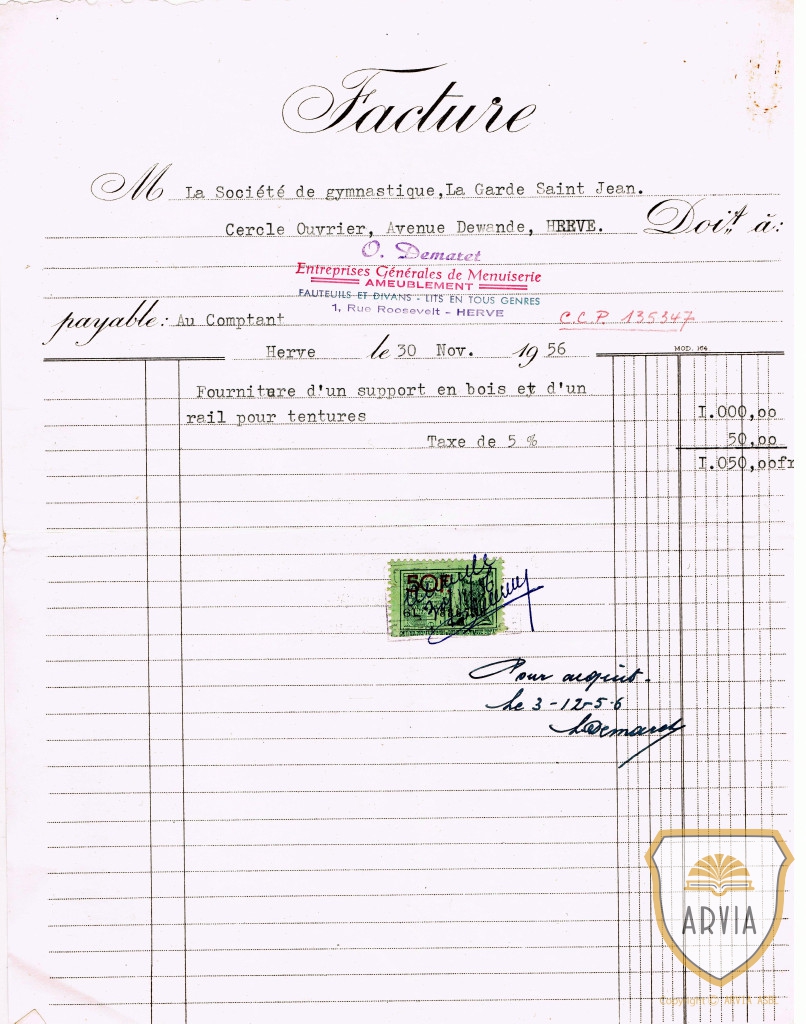 Facture
M La Société de gymnastique,La Garde Saint Jean.
Cercle Ouvrier, Avenue Dewande, HREVE. Doit à:
O. Demaret
Entreprises Générales de Menuiserie
AMEUBLEMENT
FAUTEUILS ET DIVANS - LITS EN TOUS GENRES
1, Rue Roosevelt - HERVE
payable: Au Comptant C.C.P. 135347
Herve le 30 Nov. 19 56
MOD. 164
Fourniture d'un support en bois et d'un
rail pour tentures I.000,oo
Taxe de 5 % 50,oo
I.050,oofr
50F
Pour acquit.
Le 3-12-56
Demaret
ARVIA
Copyright © ARVIA ASBL